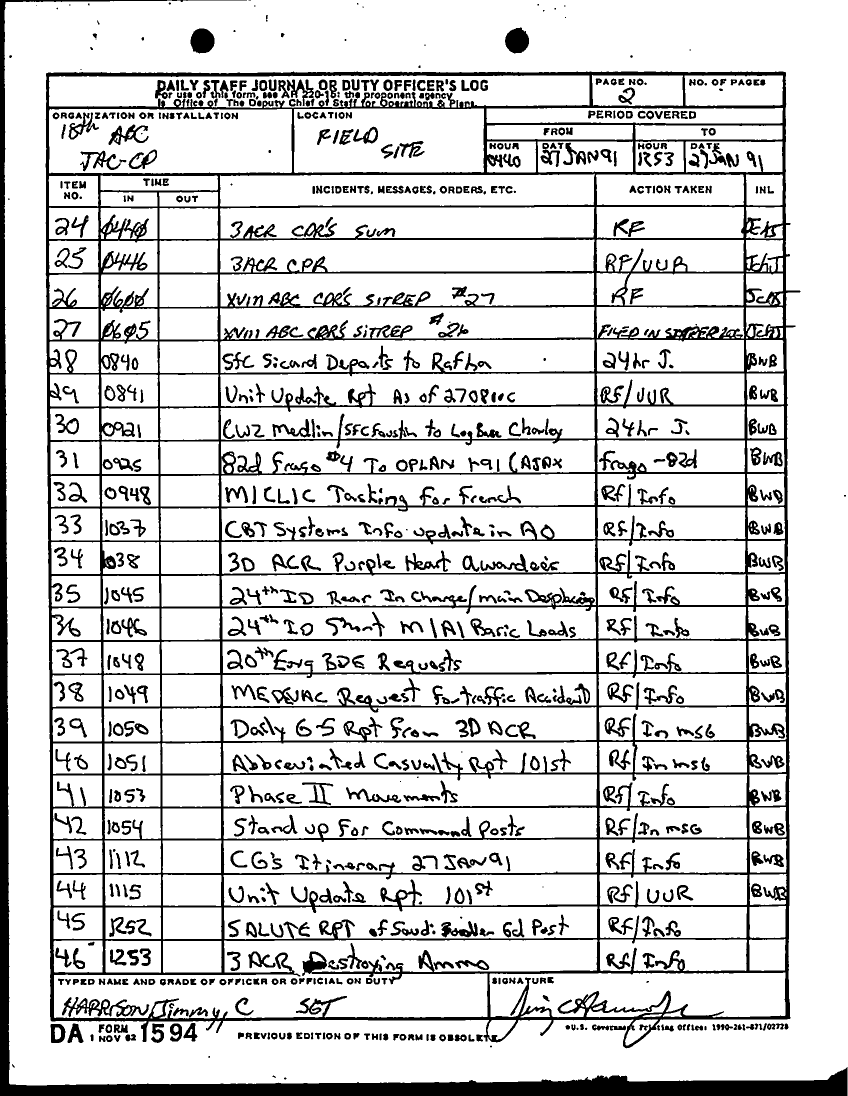 DAILY STAFF JOURNAL OR DUTY OFFICER'S LOG
For use of this form, see AR 220-15; the proponent agency
is Office of The Deputy Chief of Staff for Operations & Plans.
PAGE NO.
2
NO. OF PAGES
ORGANIZATION OR INSTALLATION
18th ABC
JAC-CP
LOCATION
FIELD
SITE
PERIOD COVERED
FROM
TO
HOUR
0440
DATE
27 JAN 91
HOUR
1253
DATE
27 JAN 91
ITEM NO.
TIME
IN
OUT
INCIDENTS, MESSAGES, ORDERS, ETC.
ACTION TAKEN
INL
24 0440 3 ACR CDR'S SUM RF
25 0446 3 ACR CPR RF/UUR
26 0600 XVIII ABC CDR'S SITREP #27 RF
27 0605 XVIII ABC CDR'S SITREP #26 FILED IN
28 0840 SFC Sicard Departs to Rafha 24 hr J. BWB
29 0841 Unit Update Rpt As of 270800C RF/UUR BWB
30 0921 CW2 Medlin/SFC Faustin to Log Base Charley 24 hr J. BWB
31 0925 82d Frago #4 To OPLAN 1-91 (AJAX frago-82d BWB
32 0948 MICLIC Tasking for French Rf/Info BWB
33 1037 CBT Systems Info update in AO Rf/Info BWB
34 1038 3D ACR Purple Heart Awardees Rf/Info BWB
35 1045 24th ID Rear In Charge/main Desplacing Rf/Info BWB
36 1046 24th ID Short M1A1 Basic Loads Rf/Info BWB
37 1048 20th Eng BDE Requests Rf/Info BWB
38 1049 MEDEVAC Request for traffic Accident Rf/Info BWB
39 1050 Daily G-5 Rpt from 3D ACR Rf/In msg BWB
40 1051 Abbreviated Casualty Rpt 101st Rf/In msg BWB
41 1053 Phase II Movements Rf/Info BWB
42 1054 Stand up For Command Posts Rf/In msg BWB
43 1112 CG's Itinerary 27 JAN 91 Rf/Info BWB
44 1115 Unit Update Rpt. 101st Rf/UUR BWB
45 1252 SALUTE RPT of Saudi Gd Post Rf/Info
46 1253 3 ACR Destroying Ammo Rf/Info
TYPED NAME AND GRADE OF OFFICER OR OFFICIAL ON DUTY
HARRISON, Jimmy, C SGT
SIGNATURE
DA FORM 1 NOV 62 1594
PREVIOUS EDITION OF THIS FORM IS OBSOLETE
U.S. Government Printing Office: 1990-261-871/02728